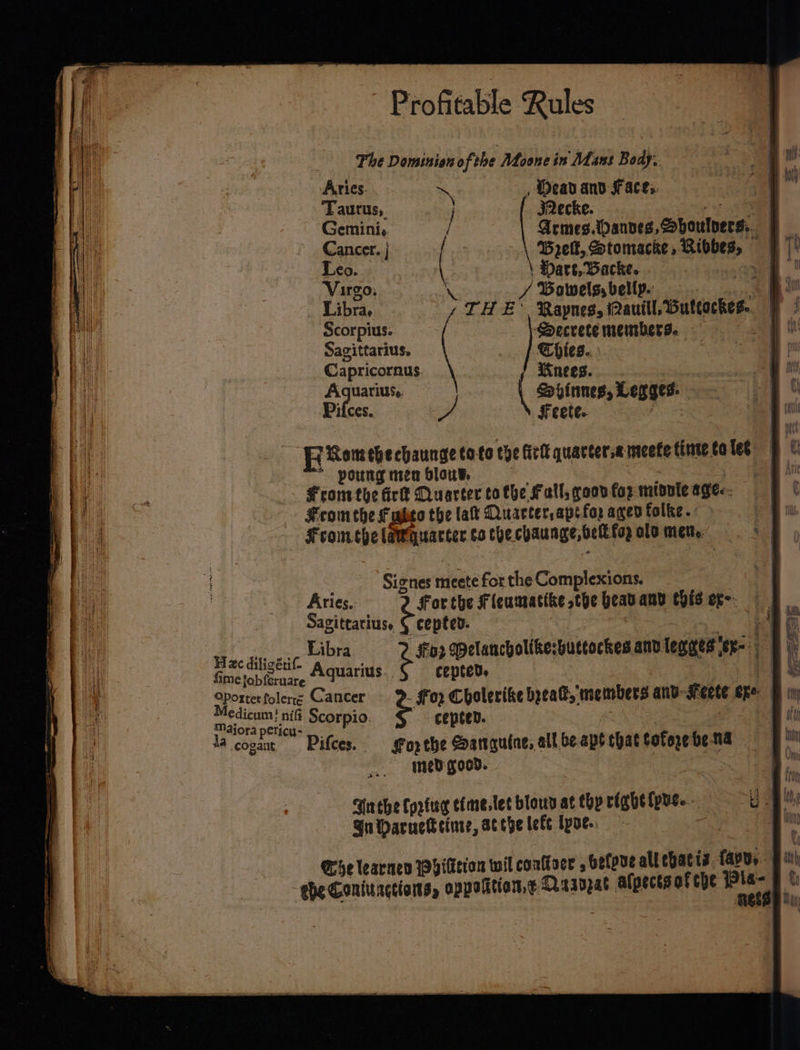 Profitable Rules
The Dominion of the Moone in Mans Body.
Aries. Head and Face,
Taurus, Necke.
Gemini, Armes, Handes, Shoulders.
Cancer. Brest, Stomacke, Ribbes,
Leo. Hart, Backe.
Virgo. Bowels, belly.
Libra, THE Raynes, Nauill, Buttockes.
Scorpius. Secrete members.
Sagittarius. Thies.
Capricornus Knees.
Aquarius, Shinnes, Legges.
Pisces. Feete.
FRom the chaunge to to the first quarter, a meete time to let
young men bloud.
From the first Quarter to the Full, good for middle age.
From the Full to the last Quarter, apt for aged folke.
From the last quarter to the chaunge, best for old men.
Signes meete for the Complexions.
Aries. For the Fleumatike, the head and this ex-
Sagittarius. cepted.
Libra For Melancholike: buttockes and legges ex-
Hæc diligẽtis- Aquarius cepted.
sime jobseruare
oporter solertẽ Cancer For Cholerike breast, members and Feete exe
Medicum: nisi Scorpio cepted.
majora pericu-
la cogant Pisces. For the Sanguine, all be apt that tofore be na
med good.
In the spring time, let bloud at thy right syde.
In Haruest time, at the left syde.
The learned Phisition wil consider, besyde all that is sayd,
the Coniunctions, opposition, & Quadrat aspects of the Pla-
nets